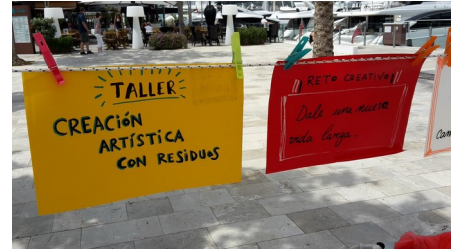 TALLER
CREACIÓN
ARTÍSTICA
CON RESIDUOS
RETO CREATIVO
Dale una nueva
vida larga.